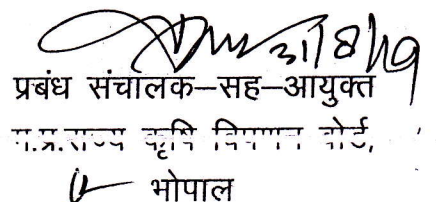 प्रबंध संचालक–सह–आयुक्त
म.प्र.राज्य कृषि विपणन बोर्ड,
भोपाल